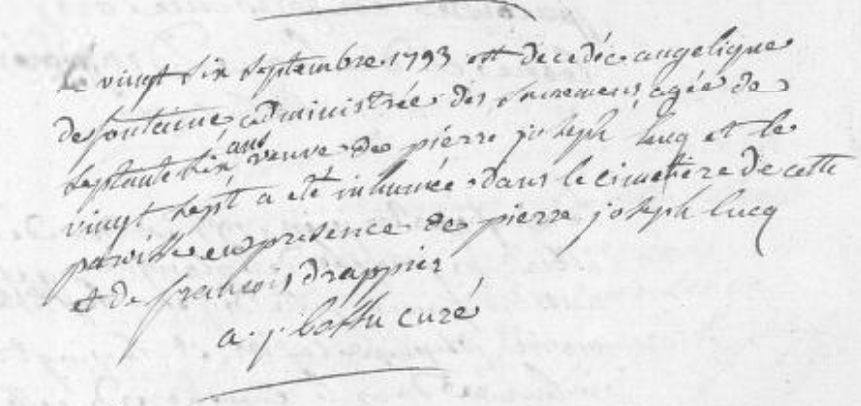 Le vingt six septembre 1793 est decedée angelique
defontaine, administrée des sacremens agée de
septante six ans veuve de pierre joseph lucq et le
vingt sept a eté inhumée dans le cimetière de cette
paroisse en presence de pierre joseph lucq
et de francois drappier
a. j. curé